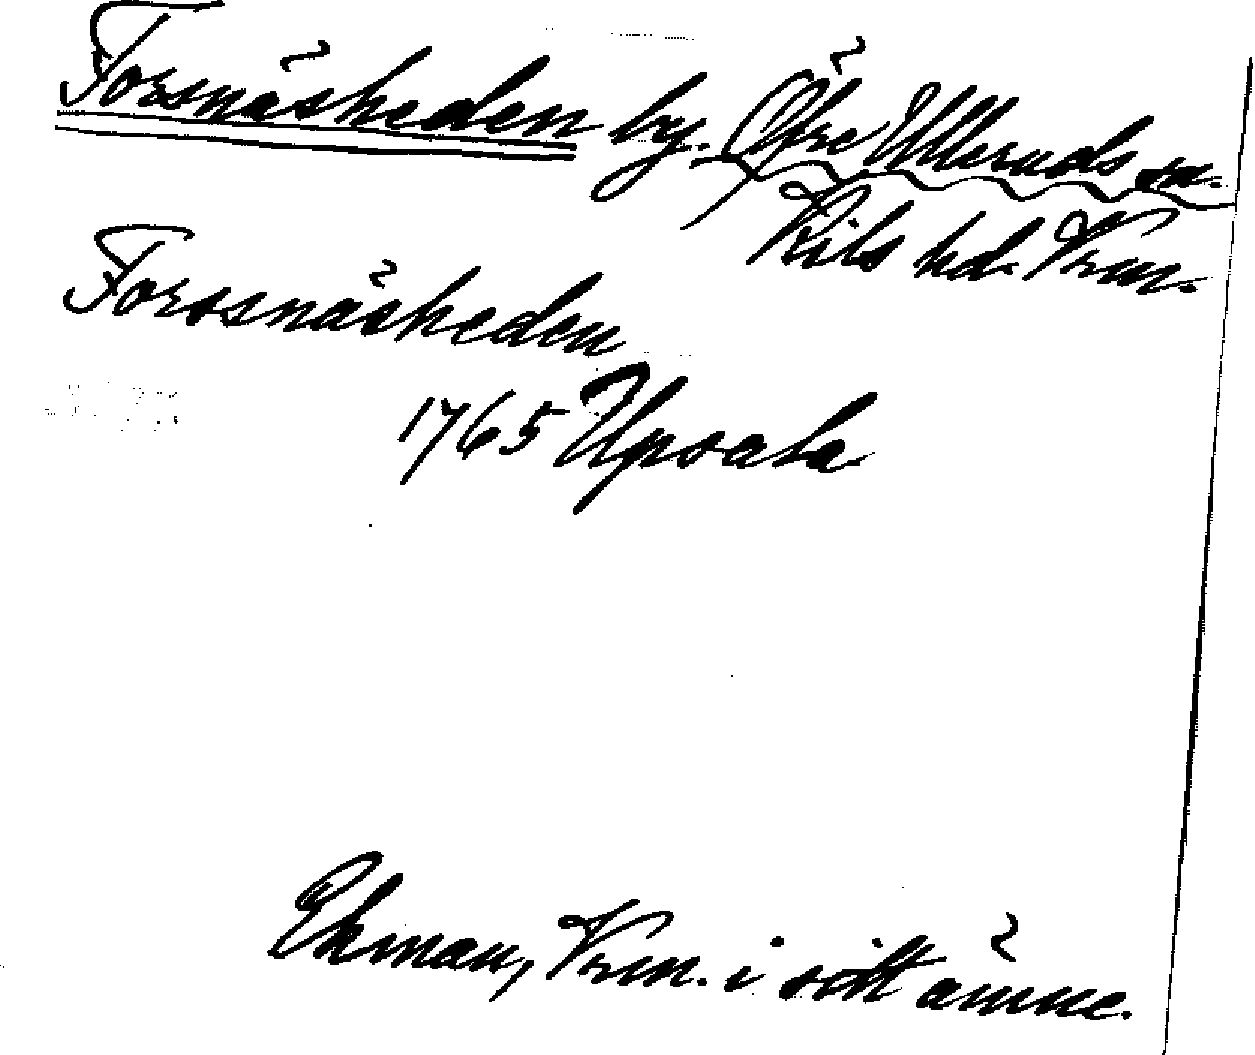 Forsnäsheden by. Öfre Ulleruds sn.
Kils hd. Vrm.
Forssnäsheden
1765 Upsala
Ekman, Vrm. i sitt ämne.